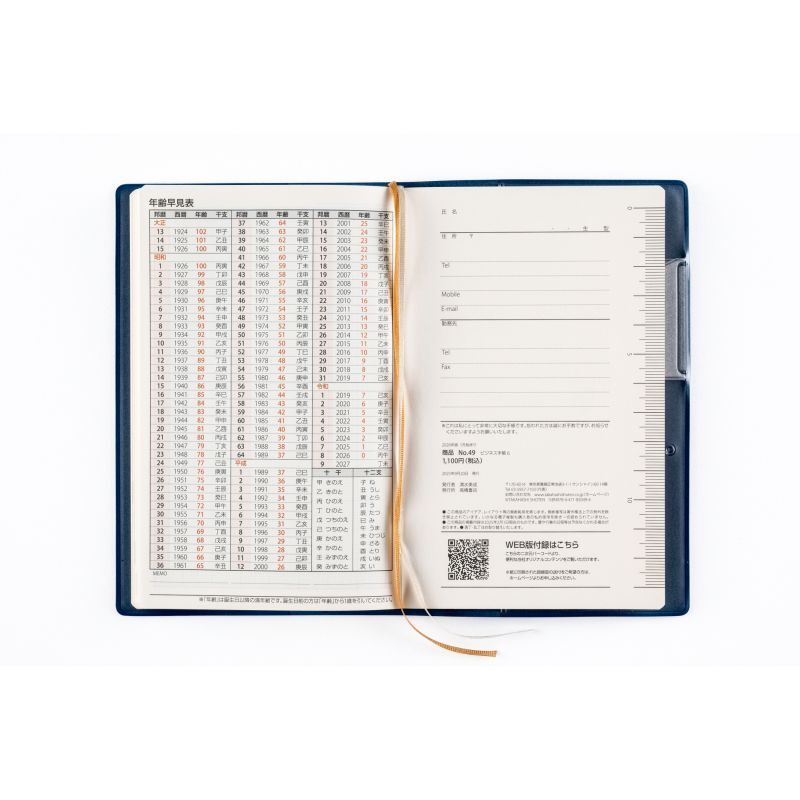 年齢早見表
邦暦 西暦 年齢 干支
大正
13 1924 102 甲子
14 1925 101 乙丑
15 1926 100 丙寅
昭和
1 1926 100 丙寅
2 1927 99 丁卯
3 1928 98 戊辰
4 1929 97 己巳
5 1930 96 庚午
6 1931 95 辛未
7 1932 94 壬申
8 1933 93 癸酉
9 1934 92 甲戌
10 1935 91 乙亥
11 1936 90 丙子
12 1937 89 丁丑
13 1938 88 戊寅
14 1939 87 己卯
15 1940 86 庚辰
16 1941 85 辛巳
17 1942 84 壬午
18 1943 83 癸未
19 1944 82 甲申
20 1945 81 乙酉
21 1946 80 丙戌
22 1947 79 丁亥
23 1948 78 戊子
24 1949 77 己丑
25 1950 76 庚寅
26 1951 75 辛卯
27 1952 74 壬辰
28 1953 73 癸巳
29 1954 72 甲午
30 1955 71 乙未
31 1956 70 丙申
32 1957 69 丁酉
33 1958 68 戊戌
34 1959 67 己亥
35 1960 66 庚子
36 1961 65 辛丑
邦暦 西暦 年齢 干支
37 1962 64 壬寅
38 1963 63 癸卯
39 1964 62 甲辰
40 1965 61 乙巳
41 1966 60 丙午
42 1967 59 丁未
43 1968 58 戊申
44 1969 57 己酉
45 1970 56 庚戌
46 1971 55 辛亥
47 1972 54 壬子
48 1973 53 癸丑
49 1974 52 甲寅
50 1975 51 乙卯
51 1976 50 丙辰
52 1977 49 丁巳
53 1978 48 戊午
54 1979 47 己未
55 1980 46 庚申
56 1981 45 辛酉
57 1982 44 壬戌
58 1983 43 癸亥
59 1984 42 甲子
60 1985 41 乙丑
61 1986 40 丙寅
62 1987 39 丁卯
63 1988 38 戊辰
64 1989 37 己巳
平成
1 1989 37 己巳
2 1990 36 庚午
3 1991 35 辛未
4 1992 34 壬申
5 1993 33 癸酉
6 1994 32 甲戌
7 1995 31 乙亥
8 1996 30 丙子
9 1997 29 丁丑
10 1998 28 戊寅
11 1999 27 己卯
12 2000 26 庚辰
邦暦 西暦 年齢 干支
13 2001 25 辛巳
14 2002 24 壬午
15 2003 23 癸未
16 2004 22 甲申
17 2005 21 乙酉
18 2006 20 丙戌
19 2007 19 丁亥
20 2008 18 戊子
21 2009 17 己丑
22 2010 16 庚寅
23 2011 15 辛卯
24 2012 14 壬辰
25 2013 13 癸巳
26 2014 12 甲午
27 2015 11 乙未
28 2016 10 丙申
29 2017 9 丁酉
30 2018 8 戊戌
31 2019 7 己亥
令和
1 2019 7 己亥
2 2020 6 庚子
3 2021 5 辛丑
4 2022 4 壬寅
5 2023 3 癸卯
6 2024 2 甲辰
7 2025 1 乙巳
8 2026 0 丙午
9 2027 丁未
十干 十二支
甲 きのえ 子 ね
乙 きのと 丑 うし
丙 ひのえ 寅 とら
丁 ひのと 卯 う
戊 つちのえ 辰 たつ
己 つちのと 巳 み
庚 かのえ 午 うま
辛 かのと 未 ひつじ
壬 みずのえ 申 さる
癸 みずのと 酉 とり
戌 いぬ
亥 い
MEMO
※「年齢」は誕生日以降の満年齢です。誕生日前の方は「年齢」から1歳を引いてください。
氏 名
・ ・ 生 型
住 所 〒
Tel
Mobile
E-mail
勤務先
Tel
Fax
※これは私にとって非常に大切な手帳です。拾われた方は誠にお手数ですが、お知らせ
くださいますようお願いいたします。
商品 No.49 ビジネス手帳 6
1,100円(税込)
発行所 高橋書店
WEB版付録はこちら
こちらの二次元バーコードより、
便利な当社オリジナルコンテンツをご覧いただけます。
ホームページよりお申し込みください。
0
5
10